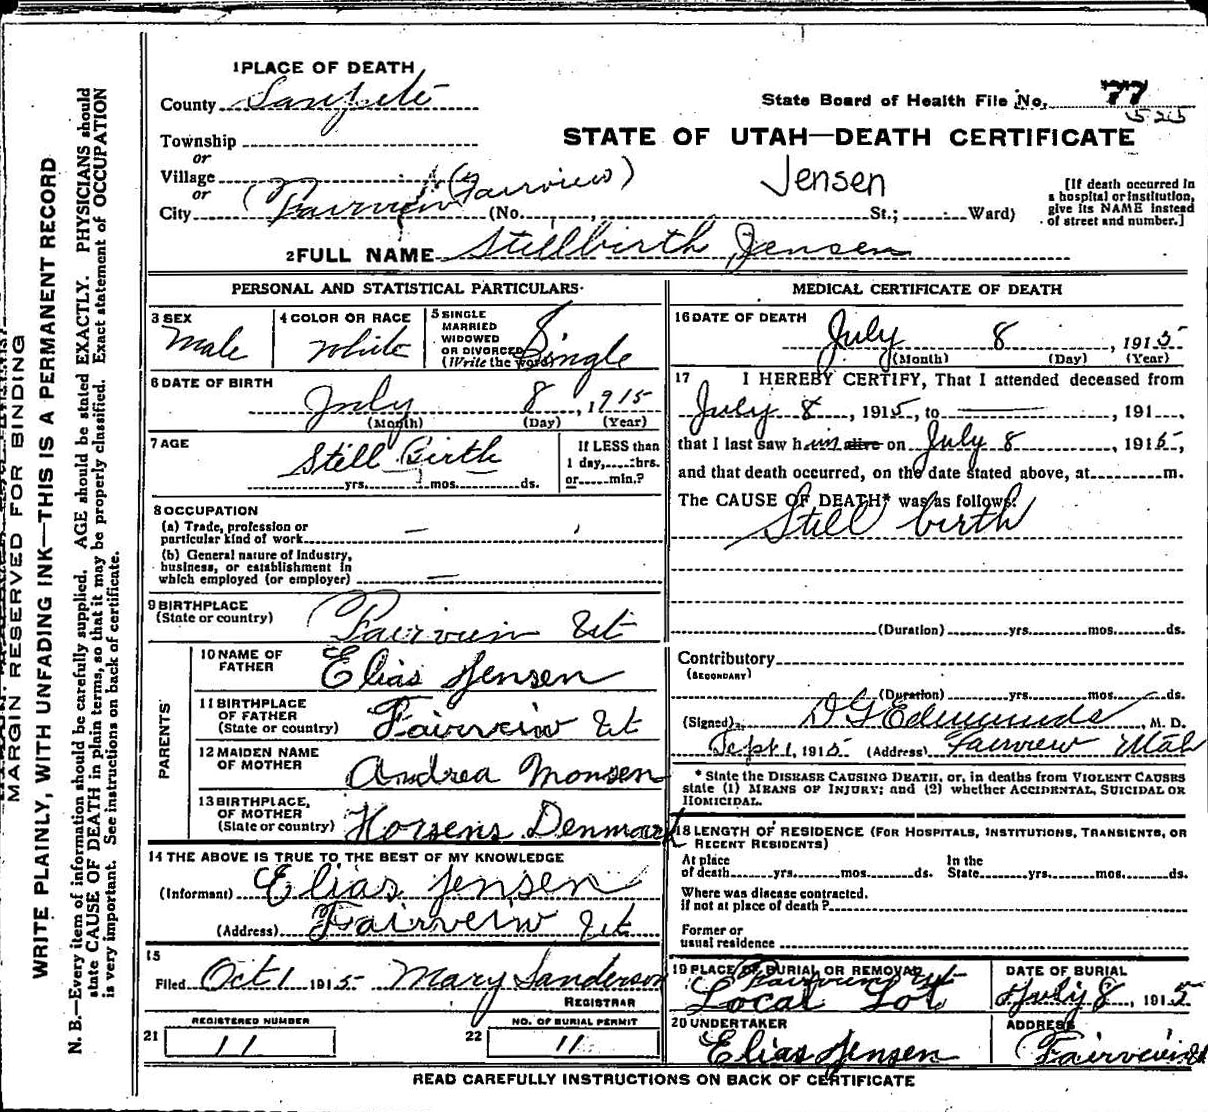 1 PLACE OF DEATH
County Sanpete
State Board of Health File No. 77
525
Township
or
Village
or
STATE OF UTAH—DEATH CERTIFICATE
(Fairview)
Jensen
City Fairview (No. , St.; Ward)
[If death occurred in
a hospital or institution,
give its NAME instead
of street and number.]
2 FULL NAME Stillbirth Jensen
PERSONAL AND STATISTICAL PARTICULARS.
3 SEX
Male
4 COLOR OR RACE
White
5 SINGLE
MARRIED
WIDOWED
OR DIVORCED
(Write the word)
Single
6 DATE OF BIRTH
July 8, 1915
(Month) (Day) (Year)
7 AGE
Still Birth
yrs. mos. ds.
If LESS than
1 day, hrs.
or min.?
8 OCCUPATION
(a) Trade, profession or
particular kind of work —
(b) General nature of Industry,
business, or establishment in
which employed (or employer) —
9 BIRTHPLACE
(State or country)
Fairvein Ut
PARENTS'
10 NAME OF
FATHER
Elias Jensen
11 BIRTHPLACE
OF FATHER
(State or country)
Fairveiw Ut
12 MAIDEN NAME
OF MOTHER
Andrea Monsen
13 BIRTHPLACE,
OF MOTHER
(State or country)
Horsens Denmark
14 THE ABOVE IS TRUE TO THE BEST OF MY KNOWLEDGE
(Informant) Elias Jensen
(Address) Fairveiw Ut
15
Filed Oct 1 1915 Mary Sanderson
REGISTRAR
21 REGISTERED NUMBER
11
22 NO. OF BURIAL PERMIT
11
MEDICAL CERTIFICATE OF DEATH
16 DATE OF DEATH
July 8, 1915
(Month) (Day) (Year)
17 I HEREBY CERTIFY, That I attended deceased from
July 8, 1915, to —, 191
that I last saw him alive on July 8, 1915,
and that death occurred, on the date stated above, at m.
The CAUSE OF DEATH* was as follows:
Still birth
(Duration) yrs. mos. ds.
Contributory
(SECONDARY)
(Duration) yrs. mos. ds.
(Signed) D G Edmunds, M. D.
Sept 1, 1915 (Address) Fairview Utah
* State the DISEASE CAUSING DEATH, or, in deaths from VIOLENT CAUSES
state (1) MEANS OF INJURY; and (2) whether ACCIDENTAL, SUICIDAL OR
HOMICIDAL.
18 LENGTH OF RESIDENCE (FOR HOSPITALS, INSTITUTIONS, TRANSIENTS, OR
RECENT RESIDENTS)
At place
of death yrs. mos. ds.
In the
State yrs. mos. ds.
Where was disease contracted.
if not at place of death?
Former or
usual residence
19 PLACE OF BURIAL OR REMOVAL
Local Lot
DATE OF BURIAL
July 8, 1915
20 UNDERTAKER
Elias Jensen
ADDRESS
Fairveiw Ut
READ CAREFULLY INSTRUCTIONS ON BACK OF CERTIFICATE
MARGIN RESERVED FOR BINDING
WRITE PLAINLY, WITH UNFADING INK—THIS IS A PERMANENT RECORD
N. B.—Every item of information should be carefully supplied. AGE should be stated EXACTLY. PHYSICIANS should
state CAUSE OF DEATH in plain terms, so that it may be properly classified. Exact statement of OCCUPATION
is very important. See instructions on back of certificate.